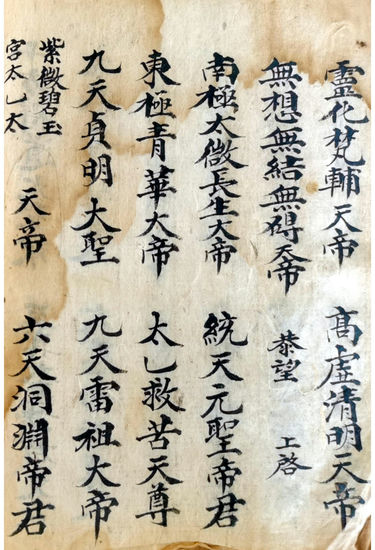 靈化梵輔天帝 高虛清明天帝
無想無結無碍天帝 恭望 上啓
南極太微長生大帝 統天元聖帝君
東極青華大帝 太乙救苦天尊
九天貞明大聖 九天雷祖大帝
紫微碧玉宮太乙太天帝 六天洞淵帝君